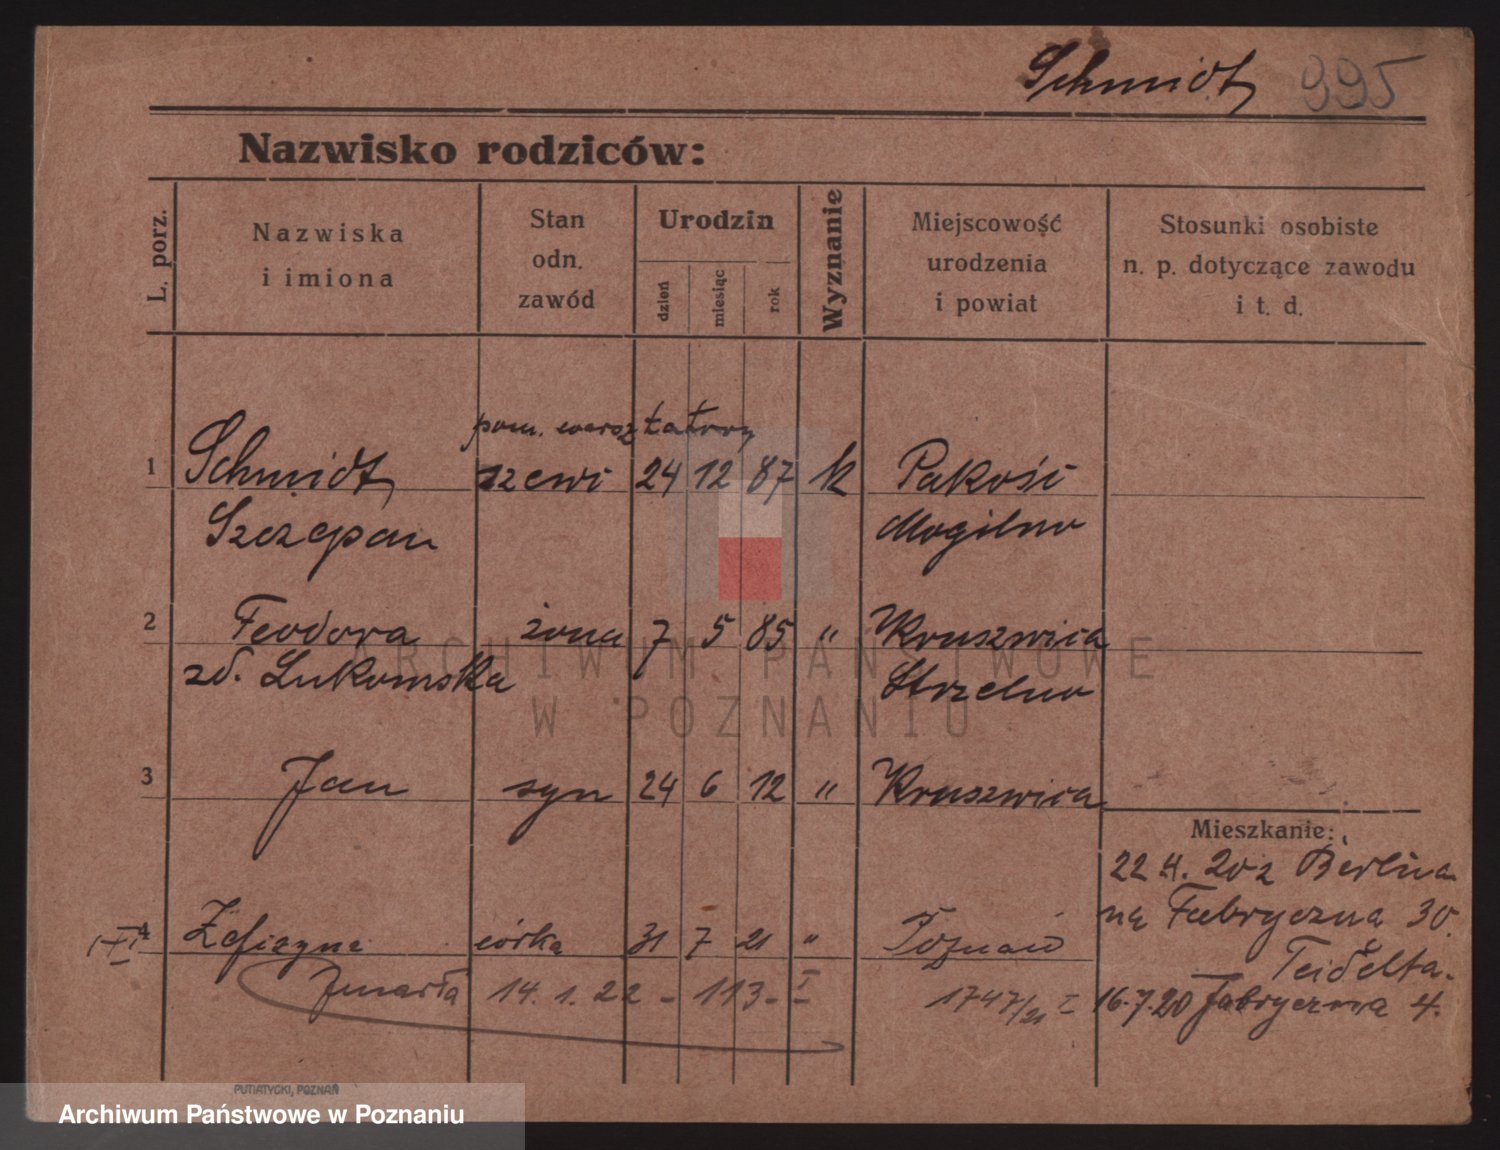 Schmidt 995
Nazwisko rodziców:
L. porz.
Nazwiska
i imiona
Stan
odn.
zawód
Urodzin
dzień
miesiąc
rok
Wyznanie
Miejscowość
urodzenia
i powiat
Stosunki osobiste
n. p. dotyczące zawodu
i t. d.
pom. warsztatowy
1 Schmidt szewi 24 12 87 k Pakość
Szczepan Mogilno
2 Feodora żona 7 5 85 " Kruszwica
zd. Lukomska Strzelno
3 Jan syn 24 6 12 " Kruszwica
Mieszkanie:
22 4. 20 z Berlina
na Fabryczna 30.
4 Zofizyna córka 31 7 21 " Poznań
Zmarła 14. 1. 22 - 113 - I 1747/21 I
16.7.20 Fabryczna 4.
PUTIATYCKI, POZNAŃ
ARCHIWUM PAŃSTWOWE
W POZNANIU
Archiwum Państwowe w Poznaniu